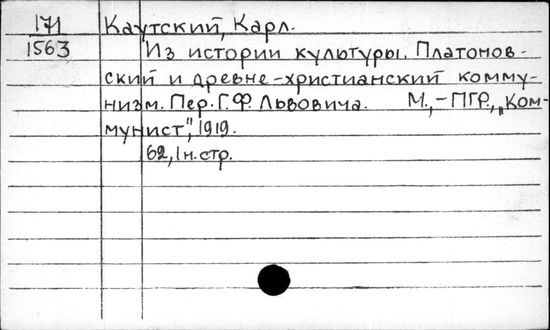 171 Каутский, Карл.
1563 Из истории культуры. Платонов-
ский и древне-христианский комму-
низм. Пер. Г.Ф. Львовича. М.,-ПГР., „Ком-
мунист", 1919.
62, 1 н. стр.